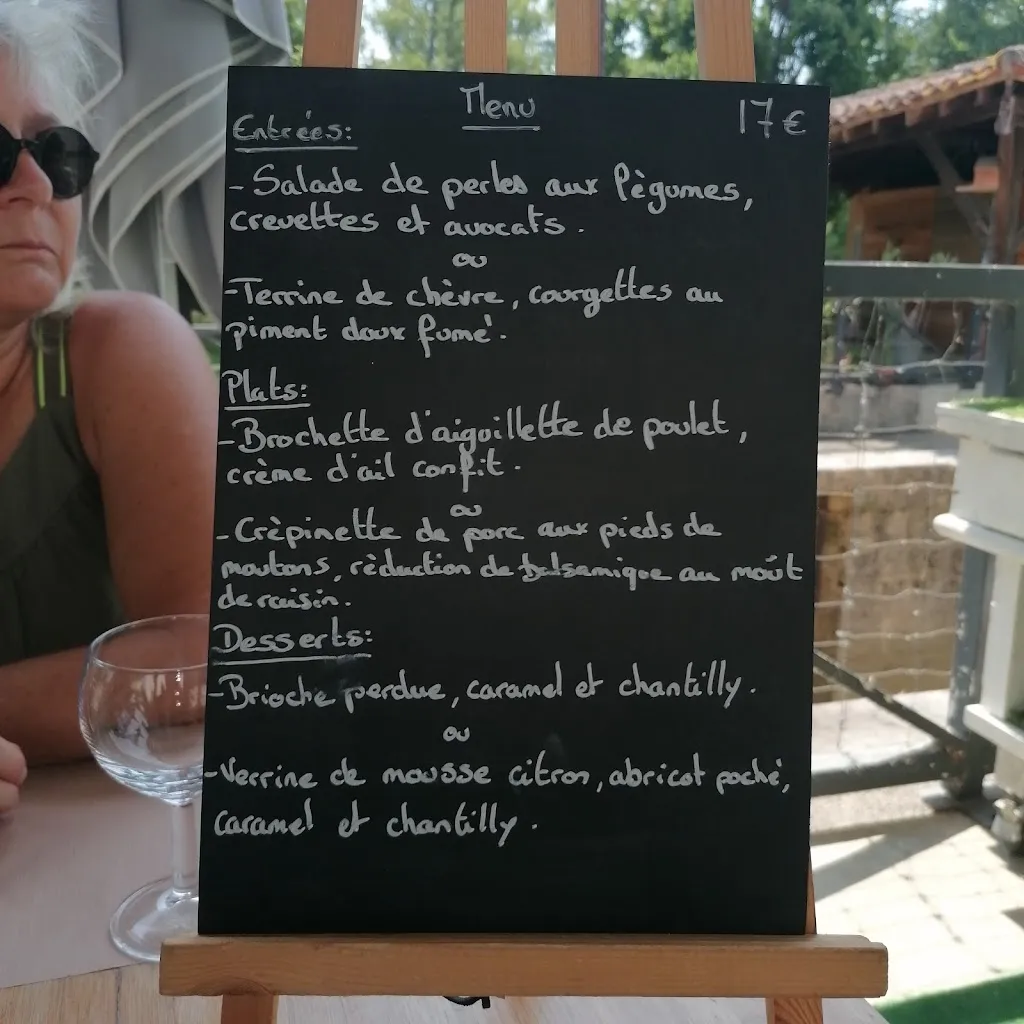 Menu
17€
Entrées:
- Salade de perles aux lègumes,
crevettes et avocats.
ou
- Terrine de chèvre, courgettes au
piment doux fumé.
Plats:
- Brochette d'aiguillette de poulet,
crème d'ail confit.
ou
- Crèpinette de porc aux pieds de
moutons, rèduction de balsamique au moût
de raisin.
Desserts:
- Brioche perdue, caramel et chantilly.
ou
- Verrine de mousse citron, abricot poché,
caramel et chantilly.